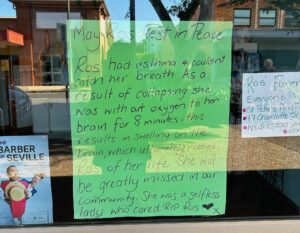 May Ros Rest in Peace
Ros had asthma & couldn't
catch her breath. As a
result of collapsing she
was without oxygen to her
brain for 8 minutes. this
results in swelling on the
brain, which ultimately robbed
Ros of her life. She will
be greatly missed in our
community. She was a selfless
lady who cared RIP Ros ❤ x
Ros Funer
Everyone
Charlotte St
Wednesday
THE
BARBER
OF SEVILLE